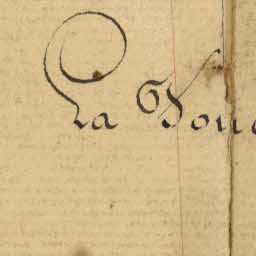 La Vou